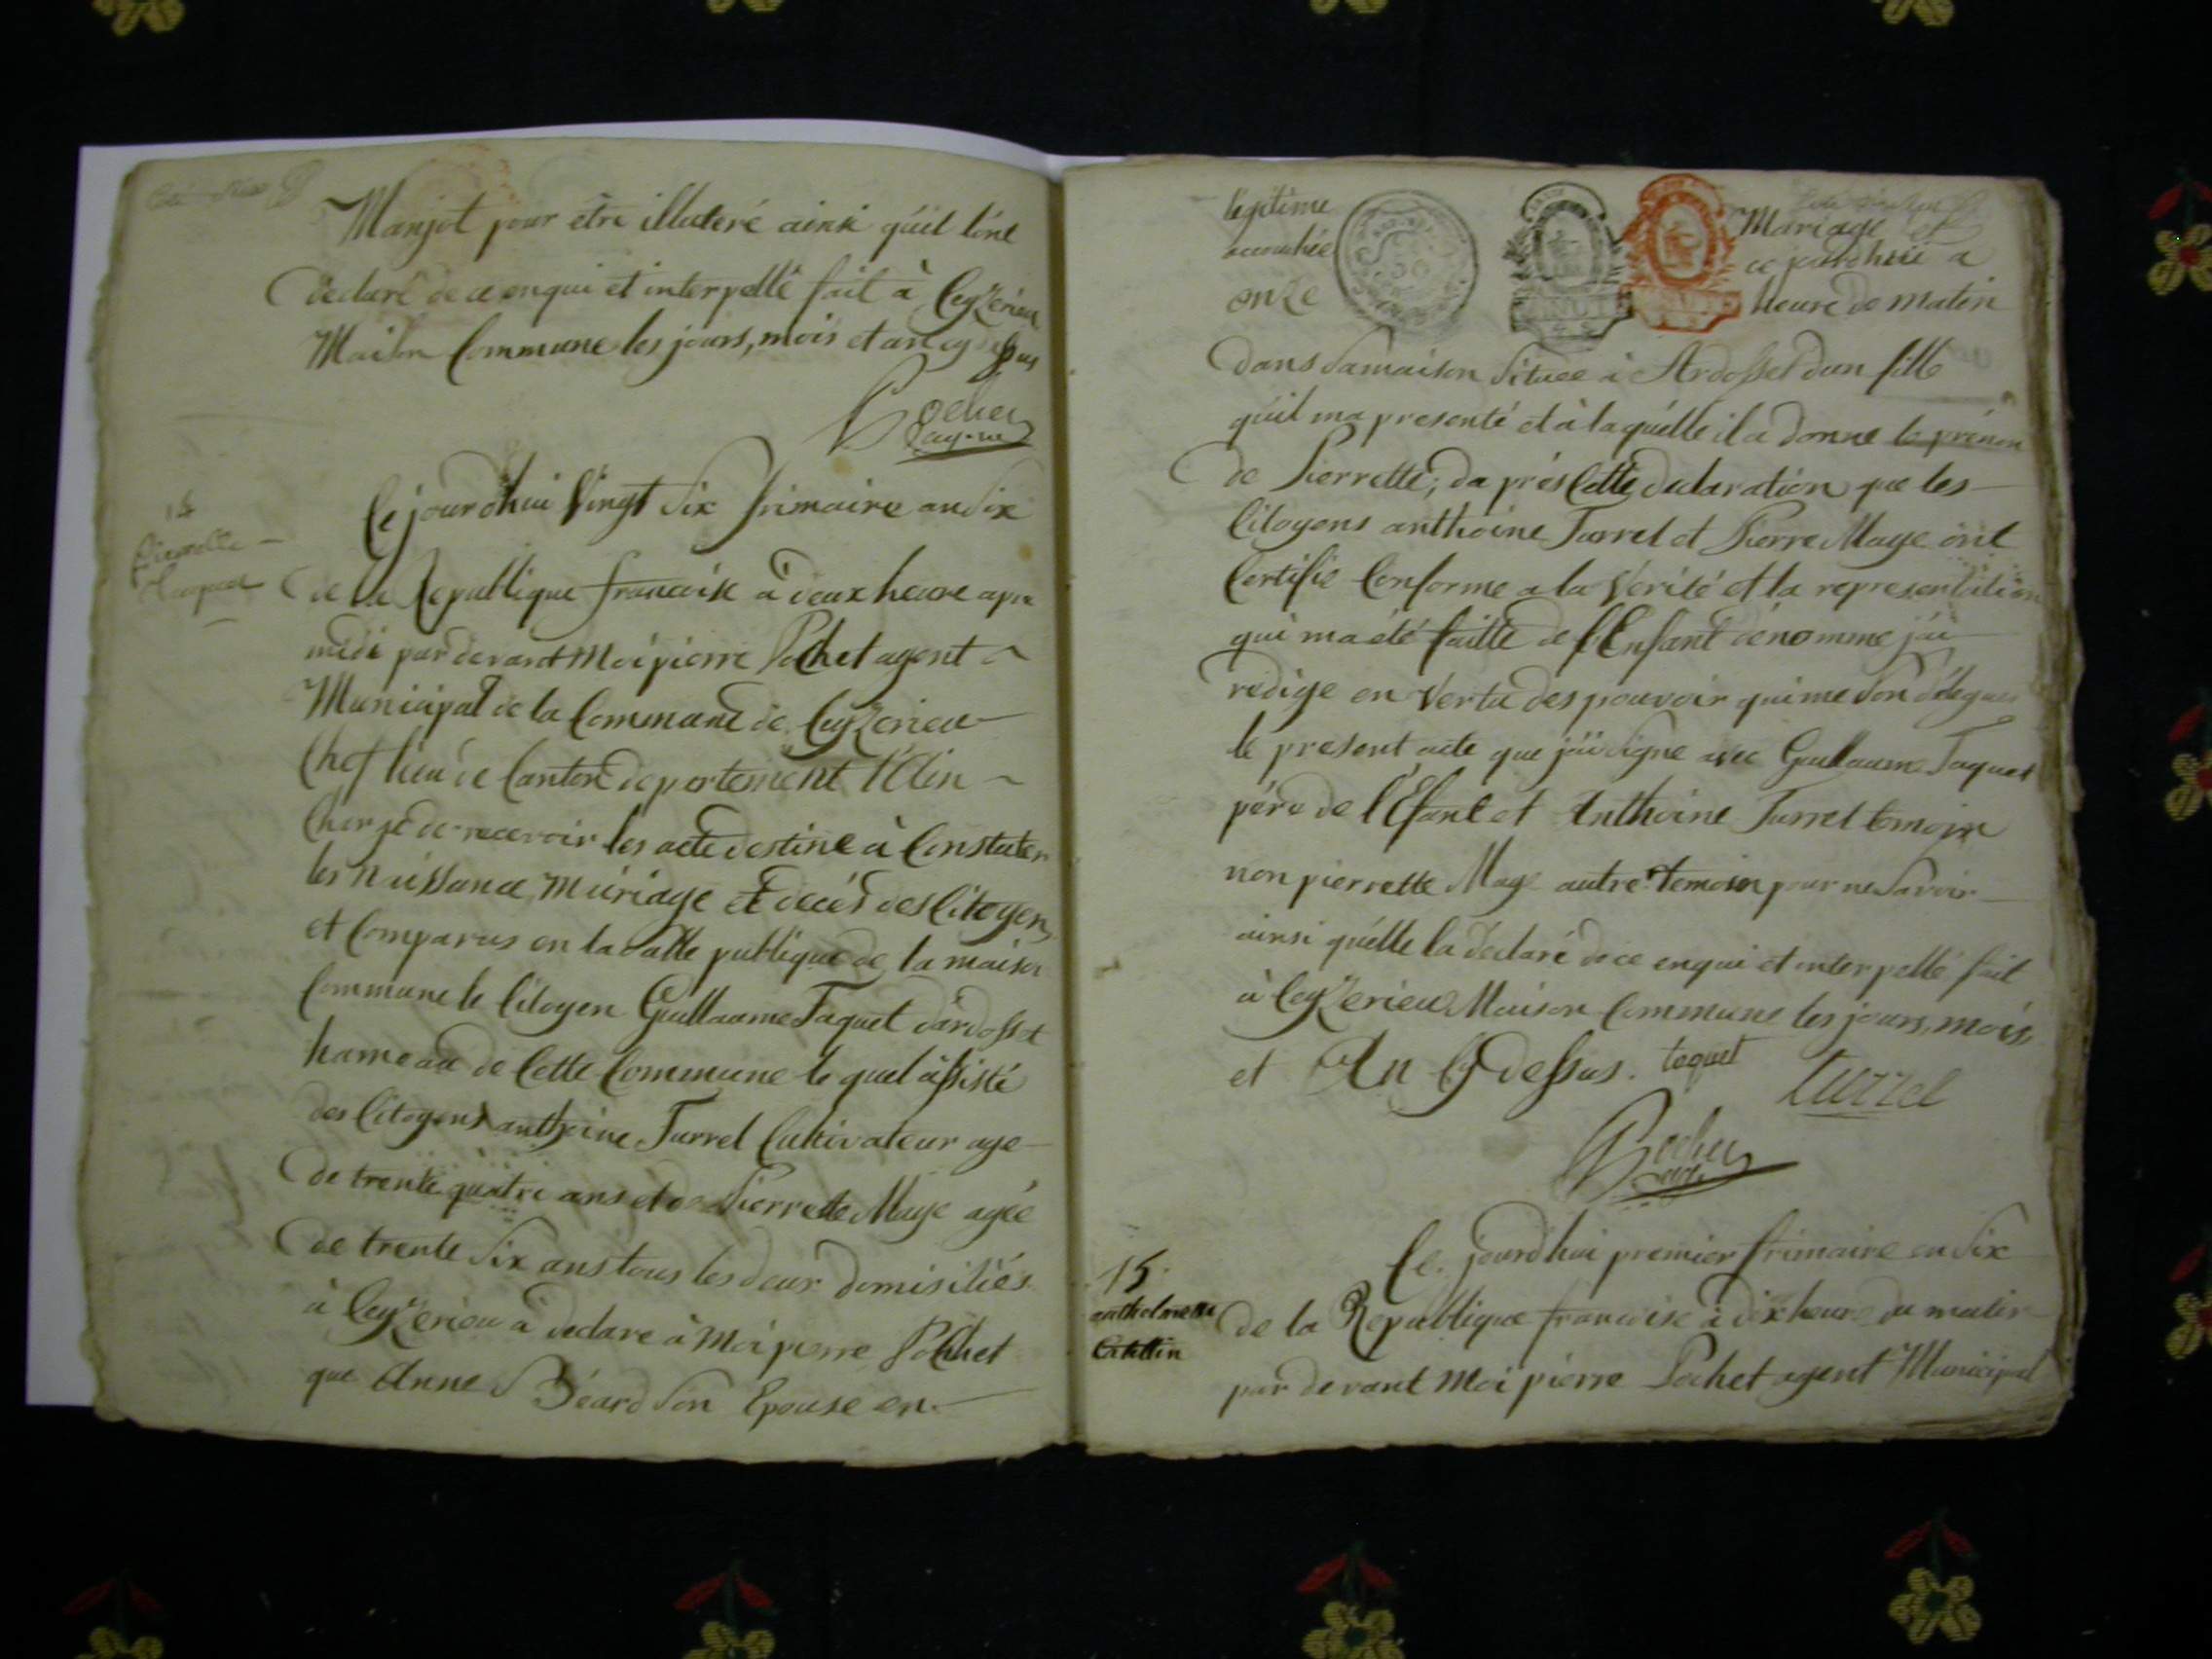 Manjot pour être illuteré ainsi quil l'ónt
déclaré de ce enquis et interpellé fait à Ceyzerieu
Maison Commune les jours, mois et an cy dessus
Pochet
agent
14
Pierrette
Taquet
Ce jourdhui Vingt Six frimaire an Six
de la Republique francoise à deux heure apre
midi par devant Moi pierre Pochet agent
Municipal de la Commune de Ceyzerieu
Chef lieu de Canton departement l'Ain
Chargé de recevoir les acte destine à Constater
les Naissance, Mariage et decès des Citoyen,
et Comparus en la salle publique de la maison
Commune le Citoyen Guillaume Taquet d'ardosset
hameau de Cette Commune le quel assisté
des Citoyens anthoine Turrel Cultivateur age
de trente quatre ans et de Pierrette Maye agée
de trente Six ans tous les deux domisiliés
à Ceyzerieu à declare à Moi pierre Pochet
que Anne Béard Son Epouse en
legitime Mariage et
accouchée ce jourdhui a
onze heure du matin
dans sa maison Situee à Ardosset dun fille
quil ma presenté et à laquélle il a donne le prénon
de Pierrette; da près Cette declaration que les
Citoyens anthoine Turrel et Pierre Maye ónt
Certifié Conforme a la Verité et la representation
qui ma été faitte de l'Enfant dénomme j'ai
redige en Vertu des pouvoir qui me son délegues
le present acte que j'ai signe avec Guillaume Taquet
père de l'Efant et Anthoine Turrel temoin
non pierrette Maye autre temoin pour ne Savoir
ainsi quélle la déclaré de ce enqui et interpellé fait
à Ceyzerieu Maison Commune les jours, mois,
et An Cy dessus. taquet turrel
Pochet
agt
15.
anthelmette
Catettin
Ce jourdhui premier frimaire an Six
de la Republique francoise à dix heure du matin
par devant Moi pierre Pochet agent Municipal